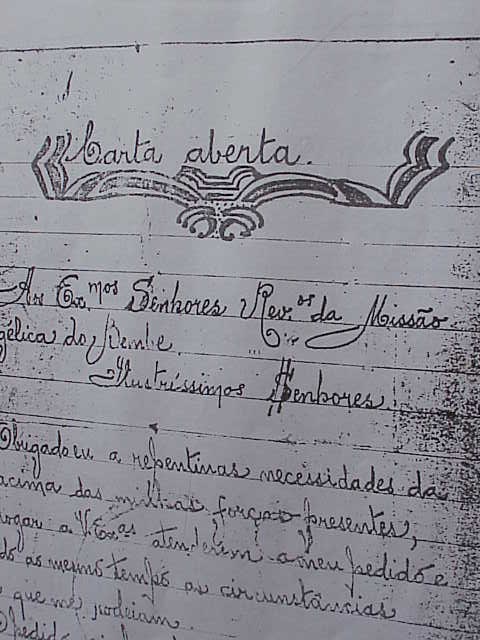 Carta aberta.
Ex.mos Senhores Rev.os da Missão
gélica do Bembe.
Illustríssimos Senhores.
Obrigado eu a repentinas necessidades da
acima das minhas forças presentes,
rogar a V. Ex.as atenderem a meu pedido e
do ao mesmo tempo as circunstâncias
que me rodeiam.